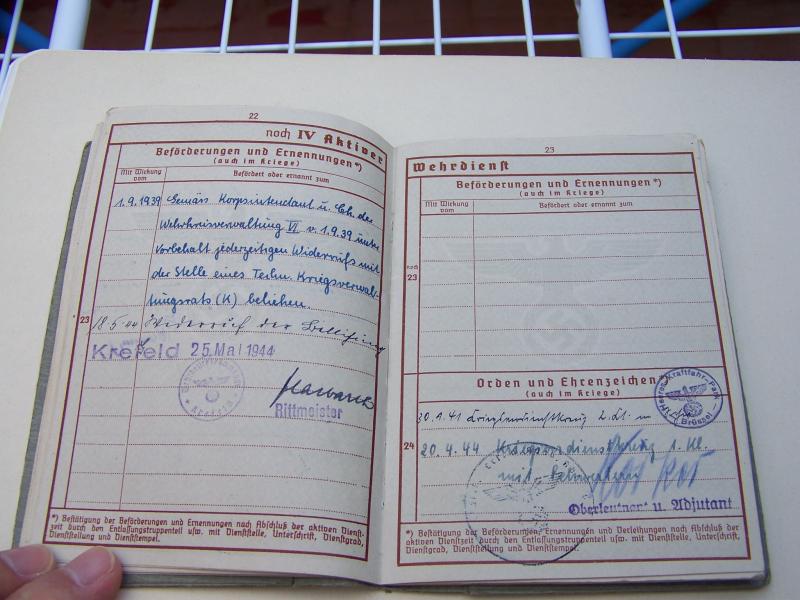 22
noch IV Aktiver
Beförderungen und Ernennungen*)
(auch im Kriege)
Mit Wirkung vom
Befördert oder ernannt zum
1.9.1939 Gemäs Korpsintendant u. Ch. der
Wehrkreisverwaltung VI v. 1.9.39 unter
Vorbehalt jederzeitigen Widerrufs mit
der Stelle eines Techn. Kriegsverwal-
tungsrats (K) beliehen.
23
18.5.44 Widerruf der
Krefeld 25. Mai 1944
Rittmeister
*) Bestätigung der Beförderungen und Ernennungen nach Abschluß der aktiven Dienst-
zeit durch den Entlassungstruppenteil usw. mit Dienststelle, Unterschrift, Dienstgrad,
Dienststellung und Dienststempel.
23
Wehrdienst
Beförderungen und Ernennungen*)
(auch im Kriege)
Mit Wirkung vom
Befördert oder ernannt zum
noch
23
Orden und Ehrenzeichen*)
(auch im Kriege)
Heeres-Kraftfahr-Park
Brüssel
30.1.41 Kriegsverdienstkreuz 2. Kl. m
24
20.4.44 Kriegsverdienstkreuz 1. Kl.
mit Schwertern
Oberleutnant u. Adjutant
*) Bestätigung der Beförderungen, Ernennungen und Verleihungen nach Abschluß der
aktiven Dienstzeit durch den Entlassungstruppenteil usw. mit Dienststelle, Unterschrift,
Dienstgrad, Dienststellung und Dienststempel.